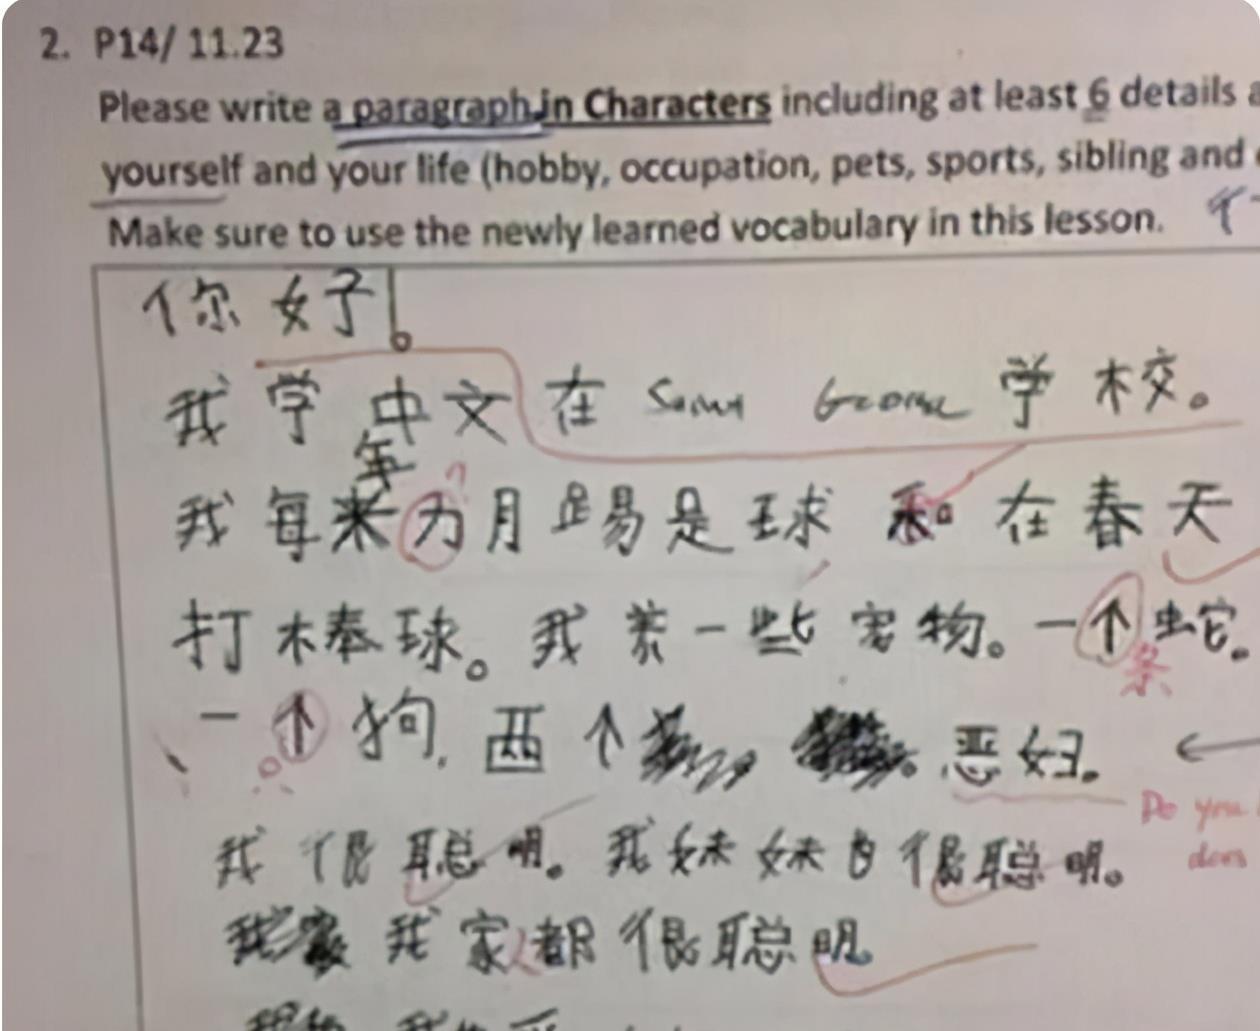 2. P14/ 11.23
Please write a paragraph in Characters including at least 6 details
yourself and your life (hobby, occupation, pets, sports, sibling and
Make sure to use the newly learned vocabulary in this lesson.
你好!。
我学中文在 学校。
年
我每 月踢足球 。在春天
打棒球。我养一些宠物。一个蛇。
条
一个狗, 个 恶妇。
只
Do you
我很聪明。我妹妹也很聪明。
我家人都很聪明。